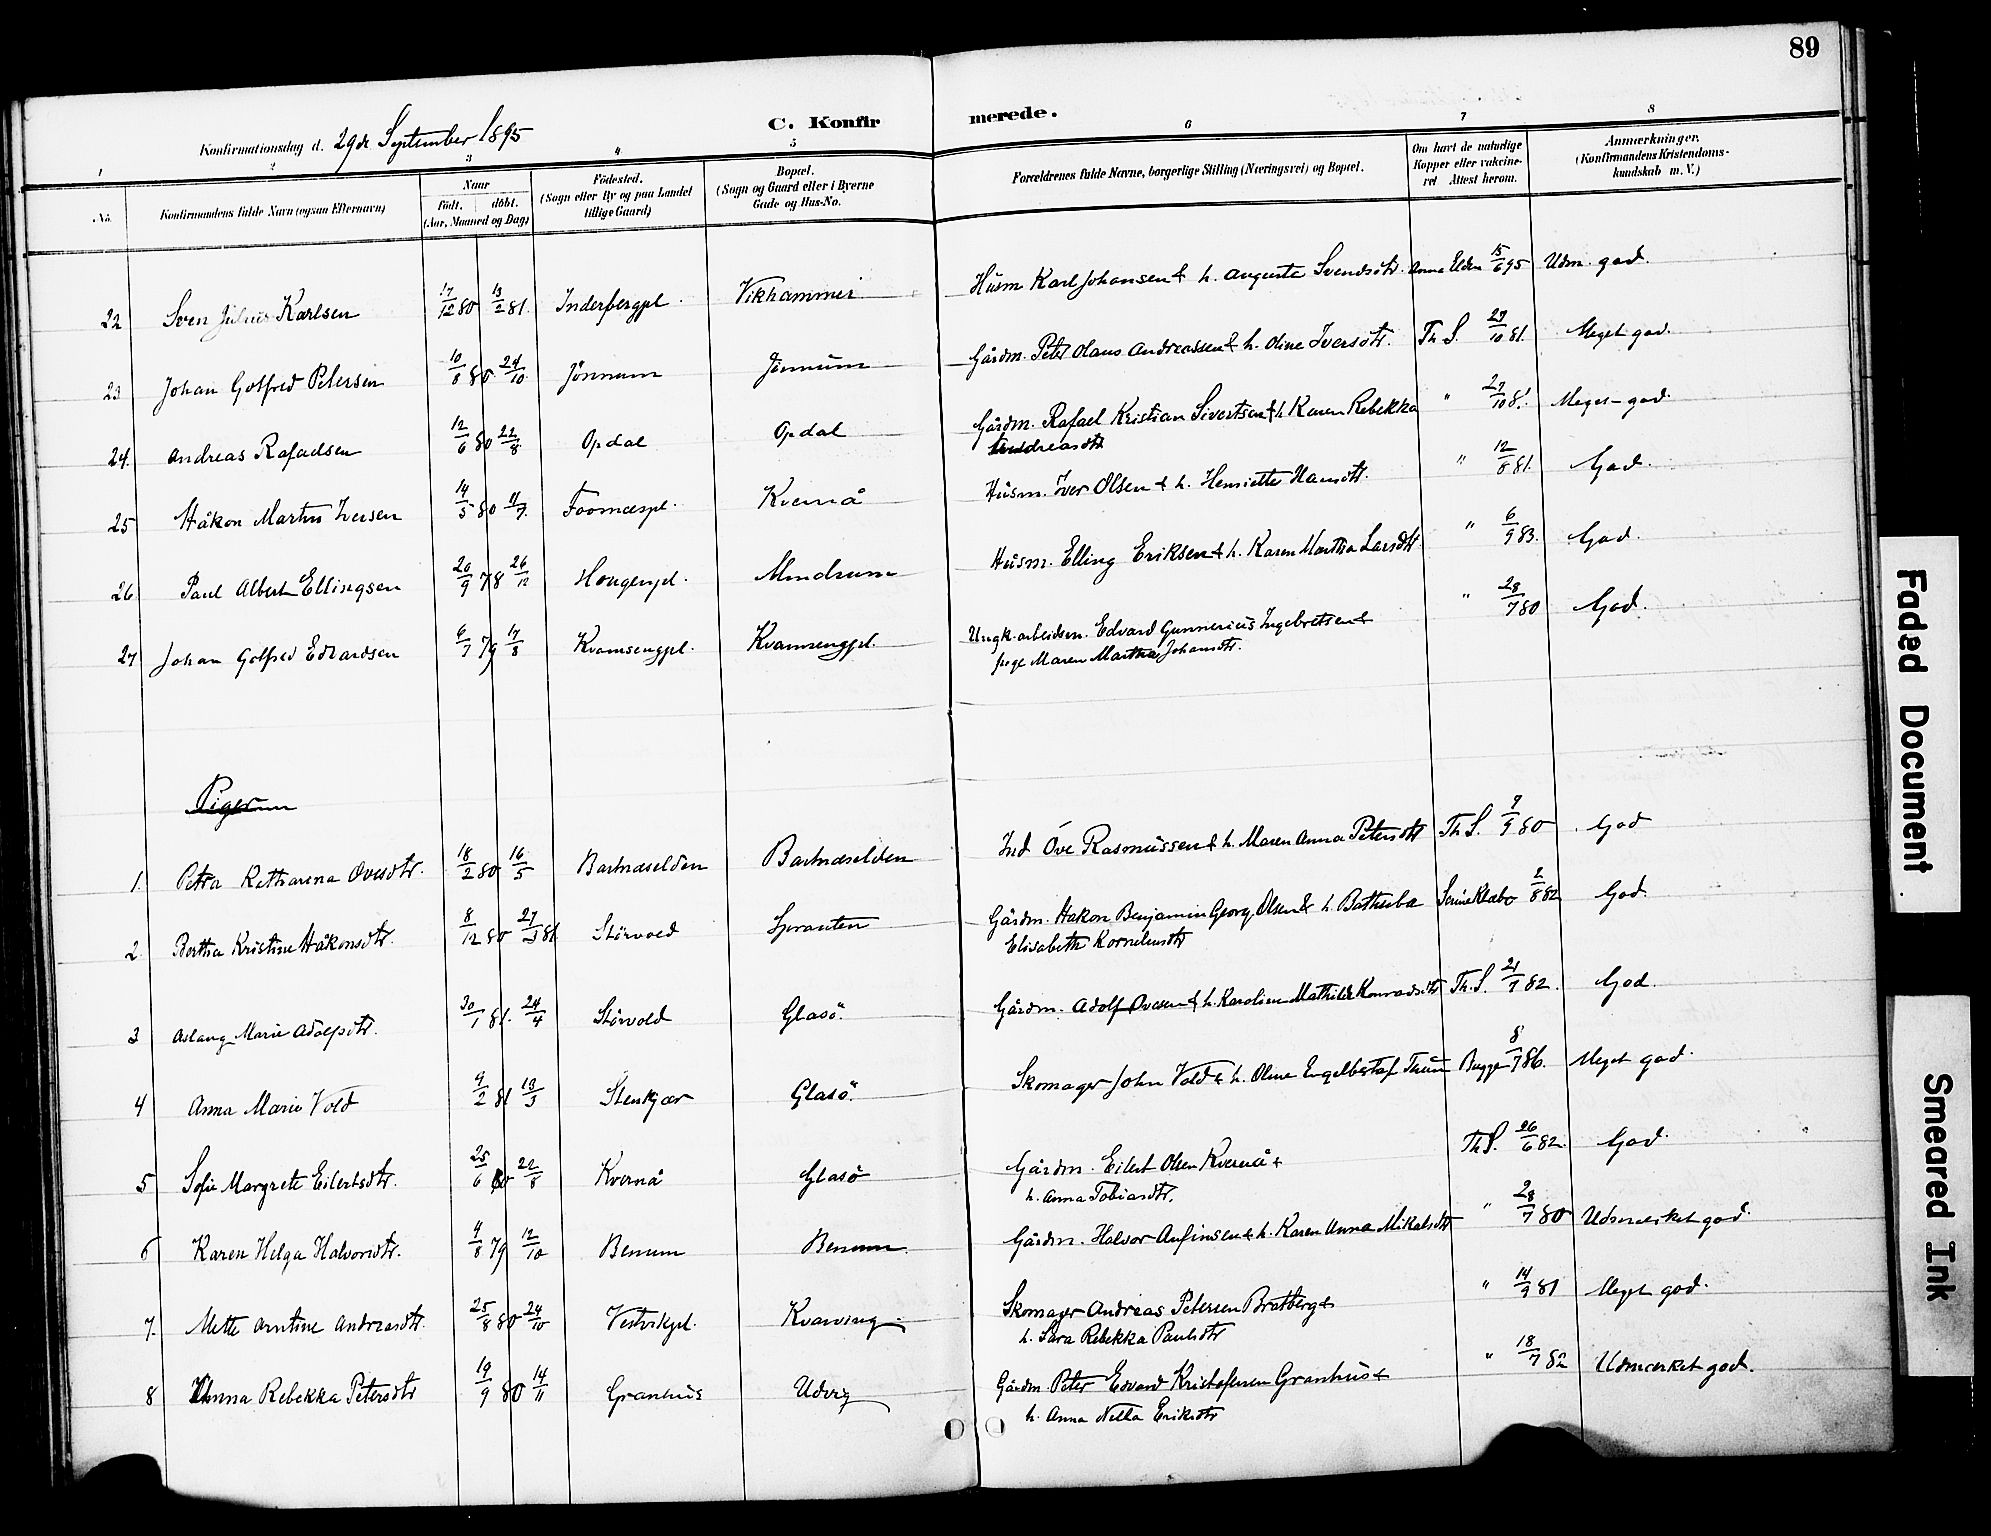 89
C. Konfirmerede.
Konfirmationsdag d. 29de September 1895
1 2 3 4 5 6 7 8
No. Konfirmandens fulde Navn (ogsaa Efternavn) Naar født. døbt. (Aar, Maaned og Dag) Fødested. (Sogn eller By og paa Landet tillige Gaard) Bopæl. (Sogn og Gaard eller i Byerne Gade og Hus-No. Forældrenes fulde Navne, borgerlige Stilling (Næringsvei) og Bopæl. Om havt de naturlige Kopper eller vaccineret Attest herom. Anmærkninger. (Konfirmandens Kristendomskundskab m. V.)
22 Sven Julius Karlsen 17/12 80 13/2 81. Inderbergpl. Vikhammer Husm Karl Johansen & h. Auguste Svendsdtr. Anna Elden 15/6 95 Udm. god.
23 Johan Gotfred Petersen 10/8 80 24/10 Jönnum Jönnum Gårdm. Peter Olaus Andreassen & h. Oline Iversdtr. Th. S. 27/10 81. Meget god.
24. Andreas Rafaelsen 12/6 80 22/8 Opdal Opdal Gårdm. Rafael Kristian Sivertsen & h Karen Rebekka
Andreasdtr " 27/10 81. Meget god.
25 Håkon Martin Iversen 14/5 80 11/7. Foosnæspl. Kvernå Husm. Iver Olsen & h. Henriette Hansdtr. " 12/8 81. God.
26 Paul Albert Ellingsen 20/9 78 26/12 Hougenpl. Mindrum Husm. Elling Eriksen & h. Karen Martha Larsdtr " 6/9 83. God.
27 Johan Gotfred Edvardsen 6/7 79 17/8 Kvamsengpl. Kvamsengpl. Ungk. arbeidsm. Edvard Gunnerius Ingebretsen &
pige Maren Martha Johansdtr. " 28/7 80 God.
Piger
1. Petra Katharina Ovesdtr. 18/2 80 16/5 Bartnæselden Bartnæselden Ind Ove Rasmussen & h. Maren Anna Petersdtr Th. S. 7/9 80 God
2 Bertha Kristine Håkonsdtr. 8/12 80 27/3 81 Störvold Spranten Gårdm. Håkon Benjamin Georg Olsen & h Bathseba
Elisabeth Korneliusdtr Serine Klæbo 2/8 82 God.
3 Aslaug Marie Adolfsdtr. 30/1 81. 24/4 Störvold Glasö. Gårdm. Adolf Ovesen & h. Karoline Mathilde Konradsdtr Th. S. 21/7 82. God.
4 Anna Marie Vold 9/2 81 13/3 Stenkjær Glasö. Skomager John Vold & h. Oline Bugge 8/7 86. Meget god.
5 Sofie Margrete Eilertsdtr. 25/6 80 22/8 Kvernå Glasö Gårdm. Eilert Olsen Kvernå &
h. Anna Tobiasdtr. Th S. 26/6 82. God.
6 Karen Helga Halvorsdtr. 4/8 79 12/10 Benum Benum Gårdm. Halvor Anfinsen & h. Karen Anna Mikalsdtr " 28/7 80 Udmærket god.
7. Mette Arntine Andreasdtr. 25/8 80 24/10 Vestvikpl. Kvarving Skomager Andreas Petersen Bratberg &
h. Sara Rebekka Paulsdtr " 14/9 81 Meget god.
8 Anna Rebekka Petersdtr 19/9 80 14/11 Granhus Udvig Gårdm. Peter Edvard Kristofersen Granhus &
h. Anna Nella Eriksdtr " 18/7 82 Udmærket god.
Faded Document
Smeared Ink